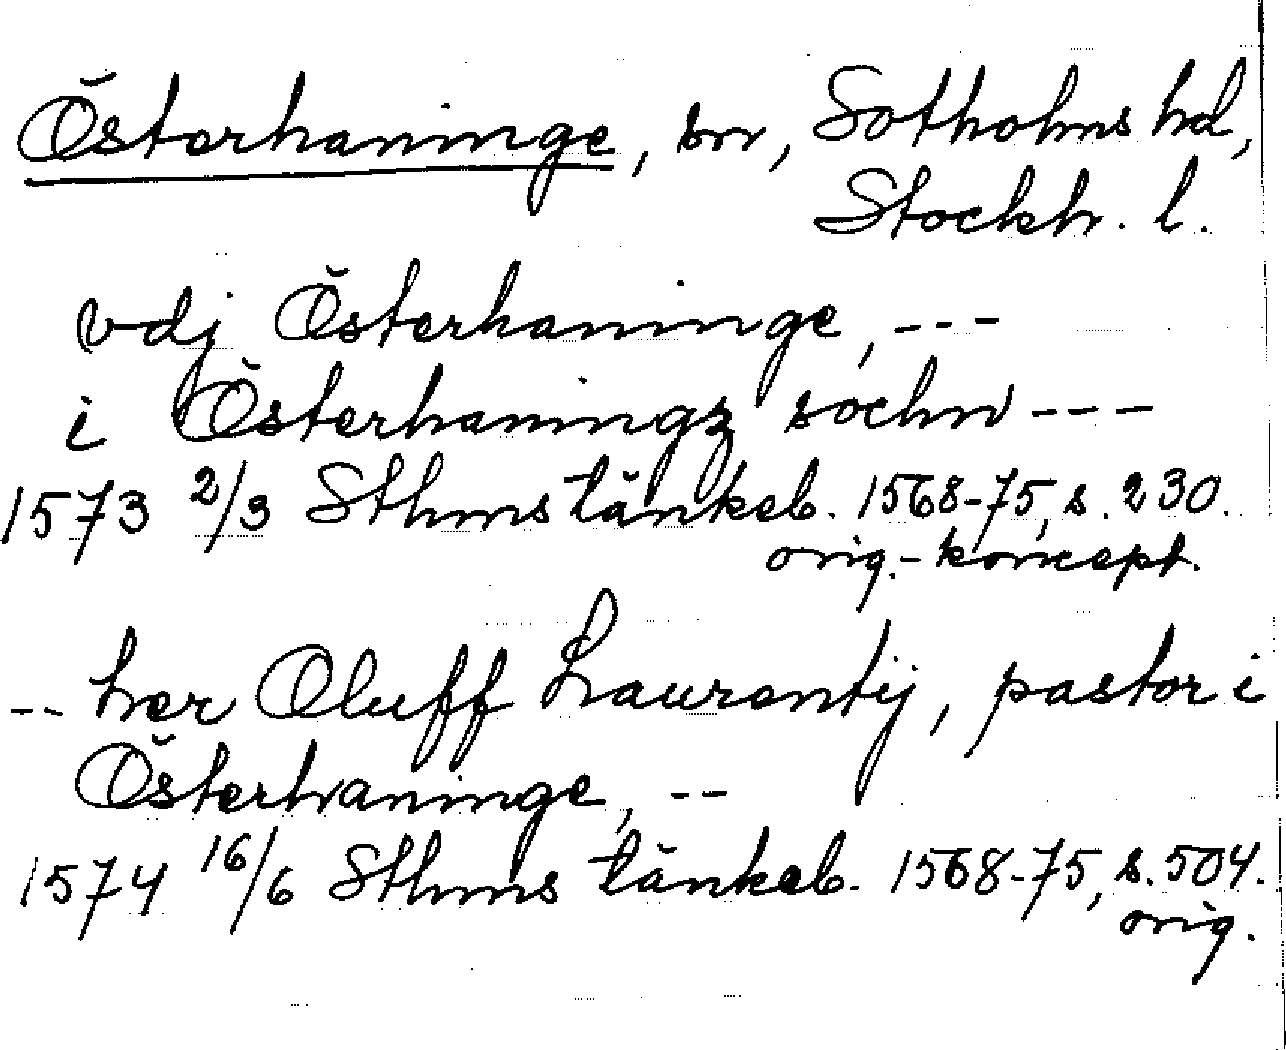 Österhaninge, sn, Sotholms hd,
Stockh. l.
vdj Österhaninge, ---
i Österhaningz sochn ---
1573 2/3 Sthms tänkeb. 1568-75, s. 230.
orig.-koncept.
-- her Oluff Laurentij, pastor i
Österhaninge, --
1574 16/6 Sthms tänkeb. 1568-75, s. 504.
orig.